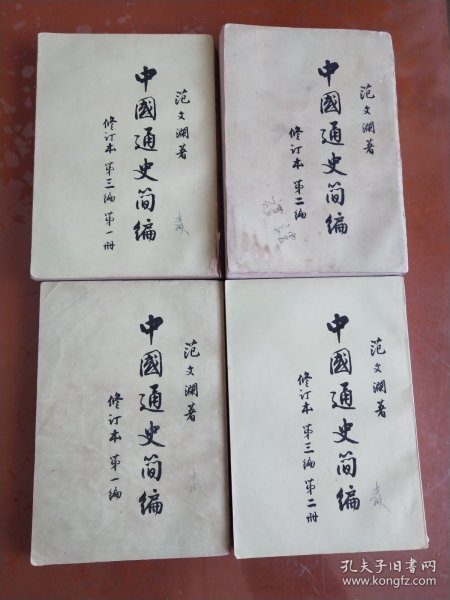 范文澜著
中國通史简编
修订本 第三编 第一册
范文澜著
中國通史简编
修订本 第二编
范文澜著
中國通史简编
修订本 第一编
范文澜著
中國通史简编
修订本 第三编 第二册
孔夫子旧书网
www.kongfz.com